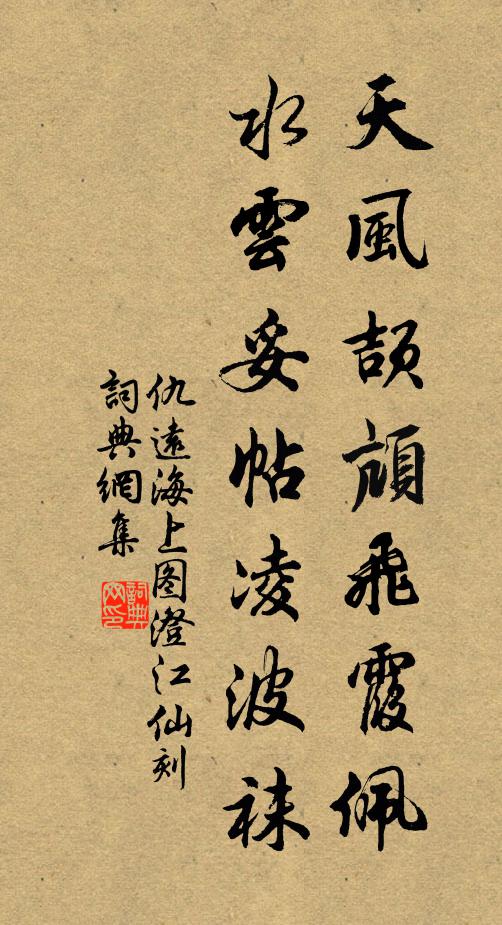 天風頡頏飛霞佩
水雲妥帖凌波袜
仇遠海上图澄江仙刻
詞典網集
詞典网印